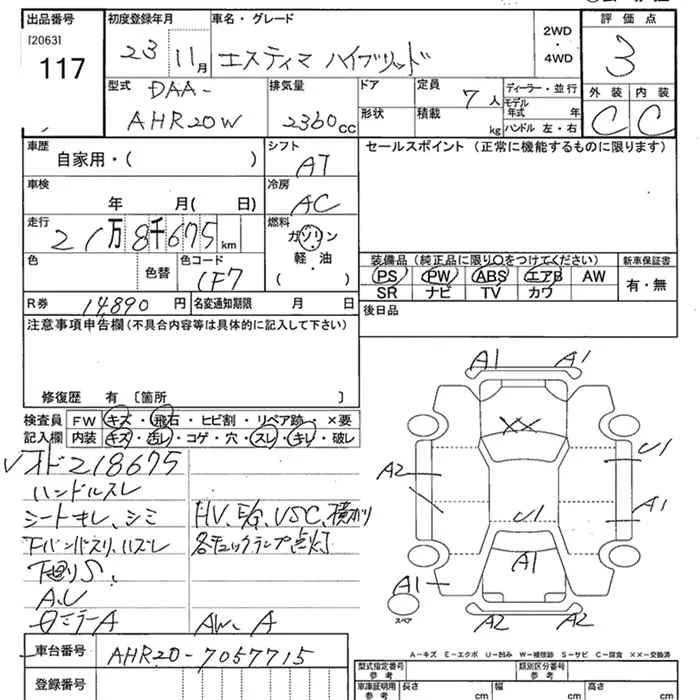 出品番号 初度登録年月 車名・グレード 評価点
[2063]
117
23 11月 エスティマ ハイブリッド 2WD・4WD 3
型式 DAA- 排気量 ドア 定員 7人 ディーラー・並行 外装 内装
AHR20W 2360cc 形状 積載 kg モデル年式 年 C C
ハンドル 左・右
車歴 自家用・( ) シフト AT セールスポイント (正常に機能するものに限ります)
車検 年 月( 日) 冷房 AC
走行 21万8千675km 燃料 ガソリン
軽・油
( )
色 色替 色コード 1F7
装備品 (純正品に限り○をつけてください) 新車保証書
PS PW ABS エアB AW 有・無
SR ナビ TV カワ
R券 14,890円 名変通知期限 月 日 後日品
注意事項申告欄 (不具合内容等は具体的に記入して下さい)
修復歴 有 〔箇所 〕
検査員 FW キズ・飛石・ヒビ割・リペア跡・×要
記入欄 内装 キズ・汚レ・コゲ・穴・スレ・キレ・破レ
メーター 218675
ハンドルスレ
シートキレ、シミ HV、E/G、VSC、横スベリ
各チェックランプ点灯
下廻りS、
A、U
ミラーA AW、A
A1 A1
XX
U1
A2
A1
U1
A1
A1
A2 A2
スペア
A-キズ E-エクボ U-凹み W-補修跡 S-サビ C-腐食 XX-交換済
車台番号 AHR20-7057715
登録番号
型式指定番号 参考 類別区分番号 参考
車庫証明用 参考 長さ cm 幅 cm 高さ cm